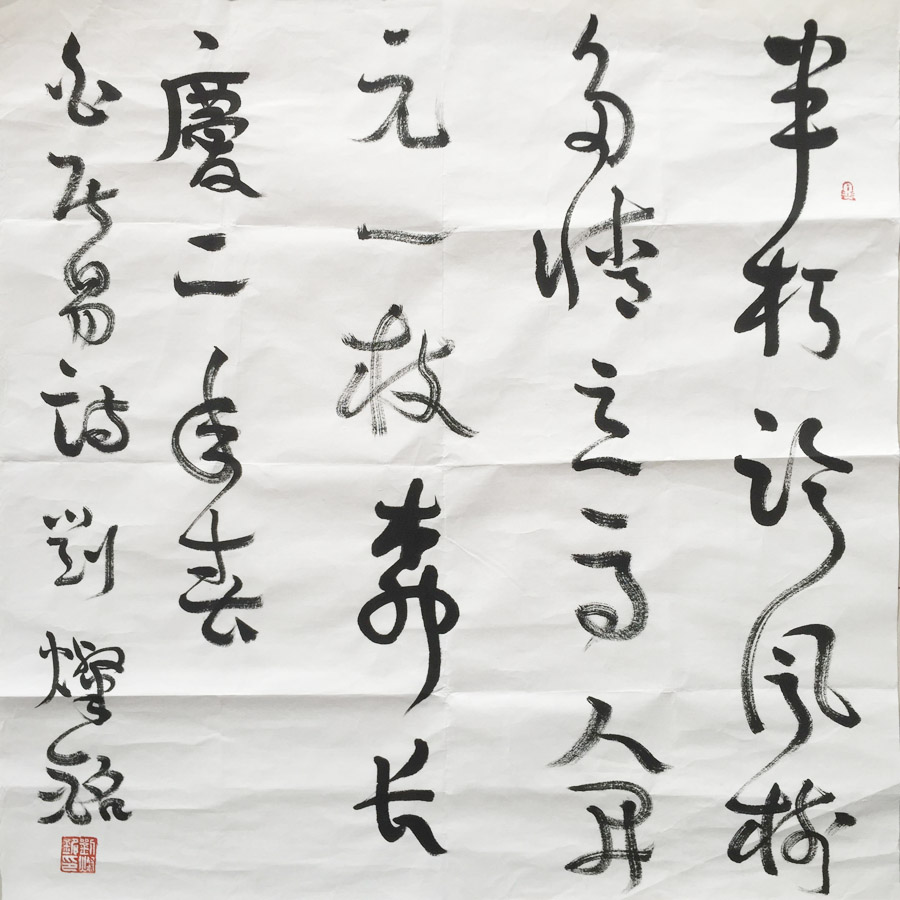 半朽臨風樹
多情立馬人開
元一枝柳长
慶二年春
白居易詩 劉燦銘